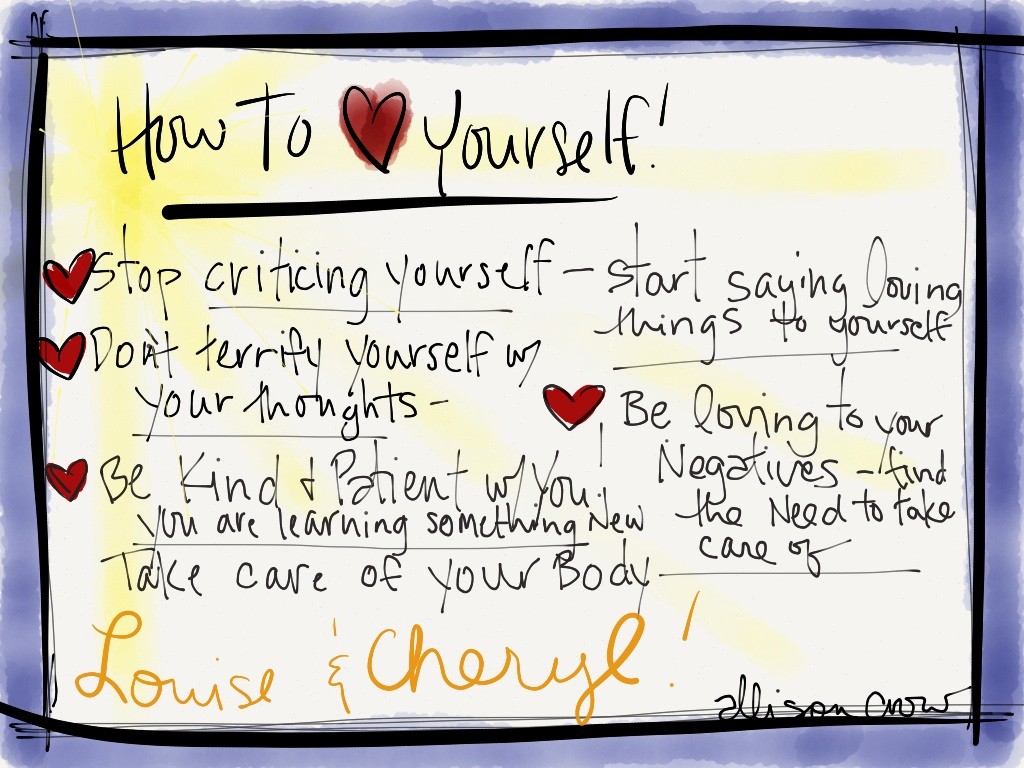 How To ❤ yourself!
Stop criticing yourself – start saying loving
things to yourself
Don't terrify yourself w/
your thoughts –
Be Kind & Patient w/ You!
you are learning something New
Take care of your Body
Be loving to your
Negatives – find
the Need to take
care of
Louise & Cheryl!
allison crow